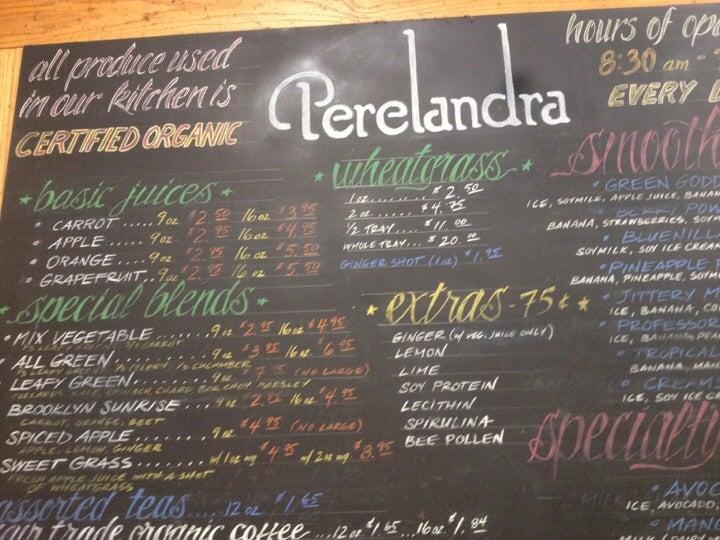 all produce used
in our kitchen is
CERTIFIED ORGANIC
Perelandra
hours of
8:30 am
EVERY
*basic juices*
• CARROT.....9oz $2.50 16oz $3.95
• APPLE.....9oz $2.95 16oz $4.95
• ORANGE....9oz $2.95 16oz $5.50
• GRAPEFRUIT..9oz $2.95 16oz $5.50
*special blends*
• MIX VEGETABLE.......9oz $2.95 16oz $4.95
ALL GREEN.......9oz $3.95 16oz $6.95
LEAFY GREEN....... (NO LARGE)
COLLARDS, KALE, SPINACH, CHARD, BOK CHOY, PARSLEY
BROOKLYN SUNRISE....9oz 16oz $4.95
CARROT, ORANGE, BEET
SPICED APPLE.......9oz $4.95 (NO LARGE)
APPLE, LEMON, GINGER
SWEET GRASS....w/1oz wg $4.95 w/2oz wg $8.95
FRESH APPLE JUICE WITH A SHOT
OF WHEATGRASS
assorted teas....12oz $1.65
fair trade organic coffee...12oz $1.65...16oz $1.84
*wheatgrass*
1oz........$2.50
2oz........$4.75
1/2 TRAY....$11.00
WHOLE TRAY...$20.00
GINGER SHOT (1oz) $1.95
*extras-75¢*
GINGER (w/VEG. JUICE ONLY)
LEMON
LIME
SOY PROTEIN
LECITHIN
SPIRULINA
BEE POLLEN
• GREEN
ICE, SOYMILK, APPLE JUICE,
BANANA, STRAWBERRIES,
SOYMILK, SOY ICE
• PINEAPPLE
BANANA, PINEAPPLE,
• JITTERY
ICE, BANANA,
• PROFESSOR
ICE, BANANA,
• TROPICAL
BANANA,
• CREAM
ICE, SOY ICE
ICE, AVOCADO,